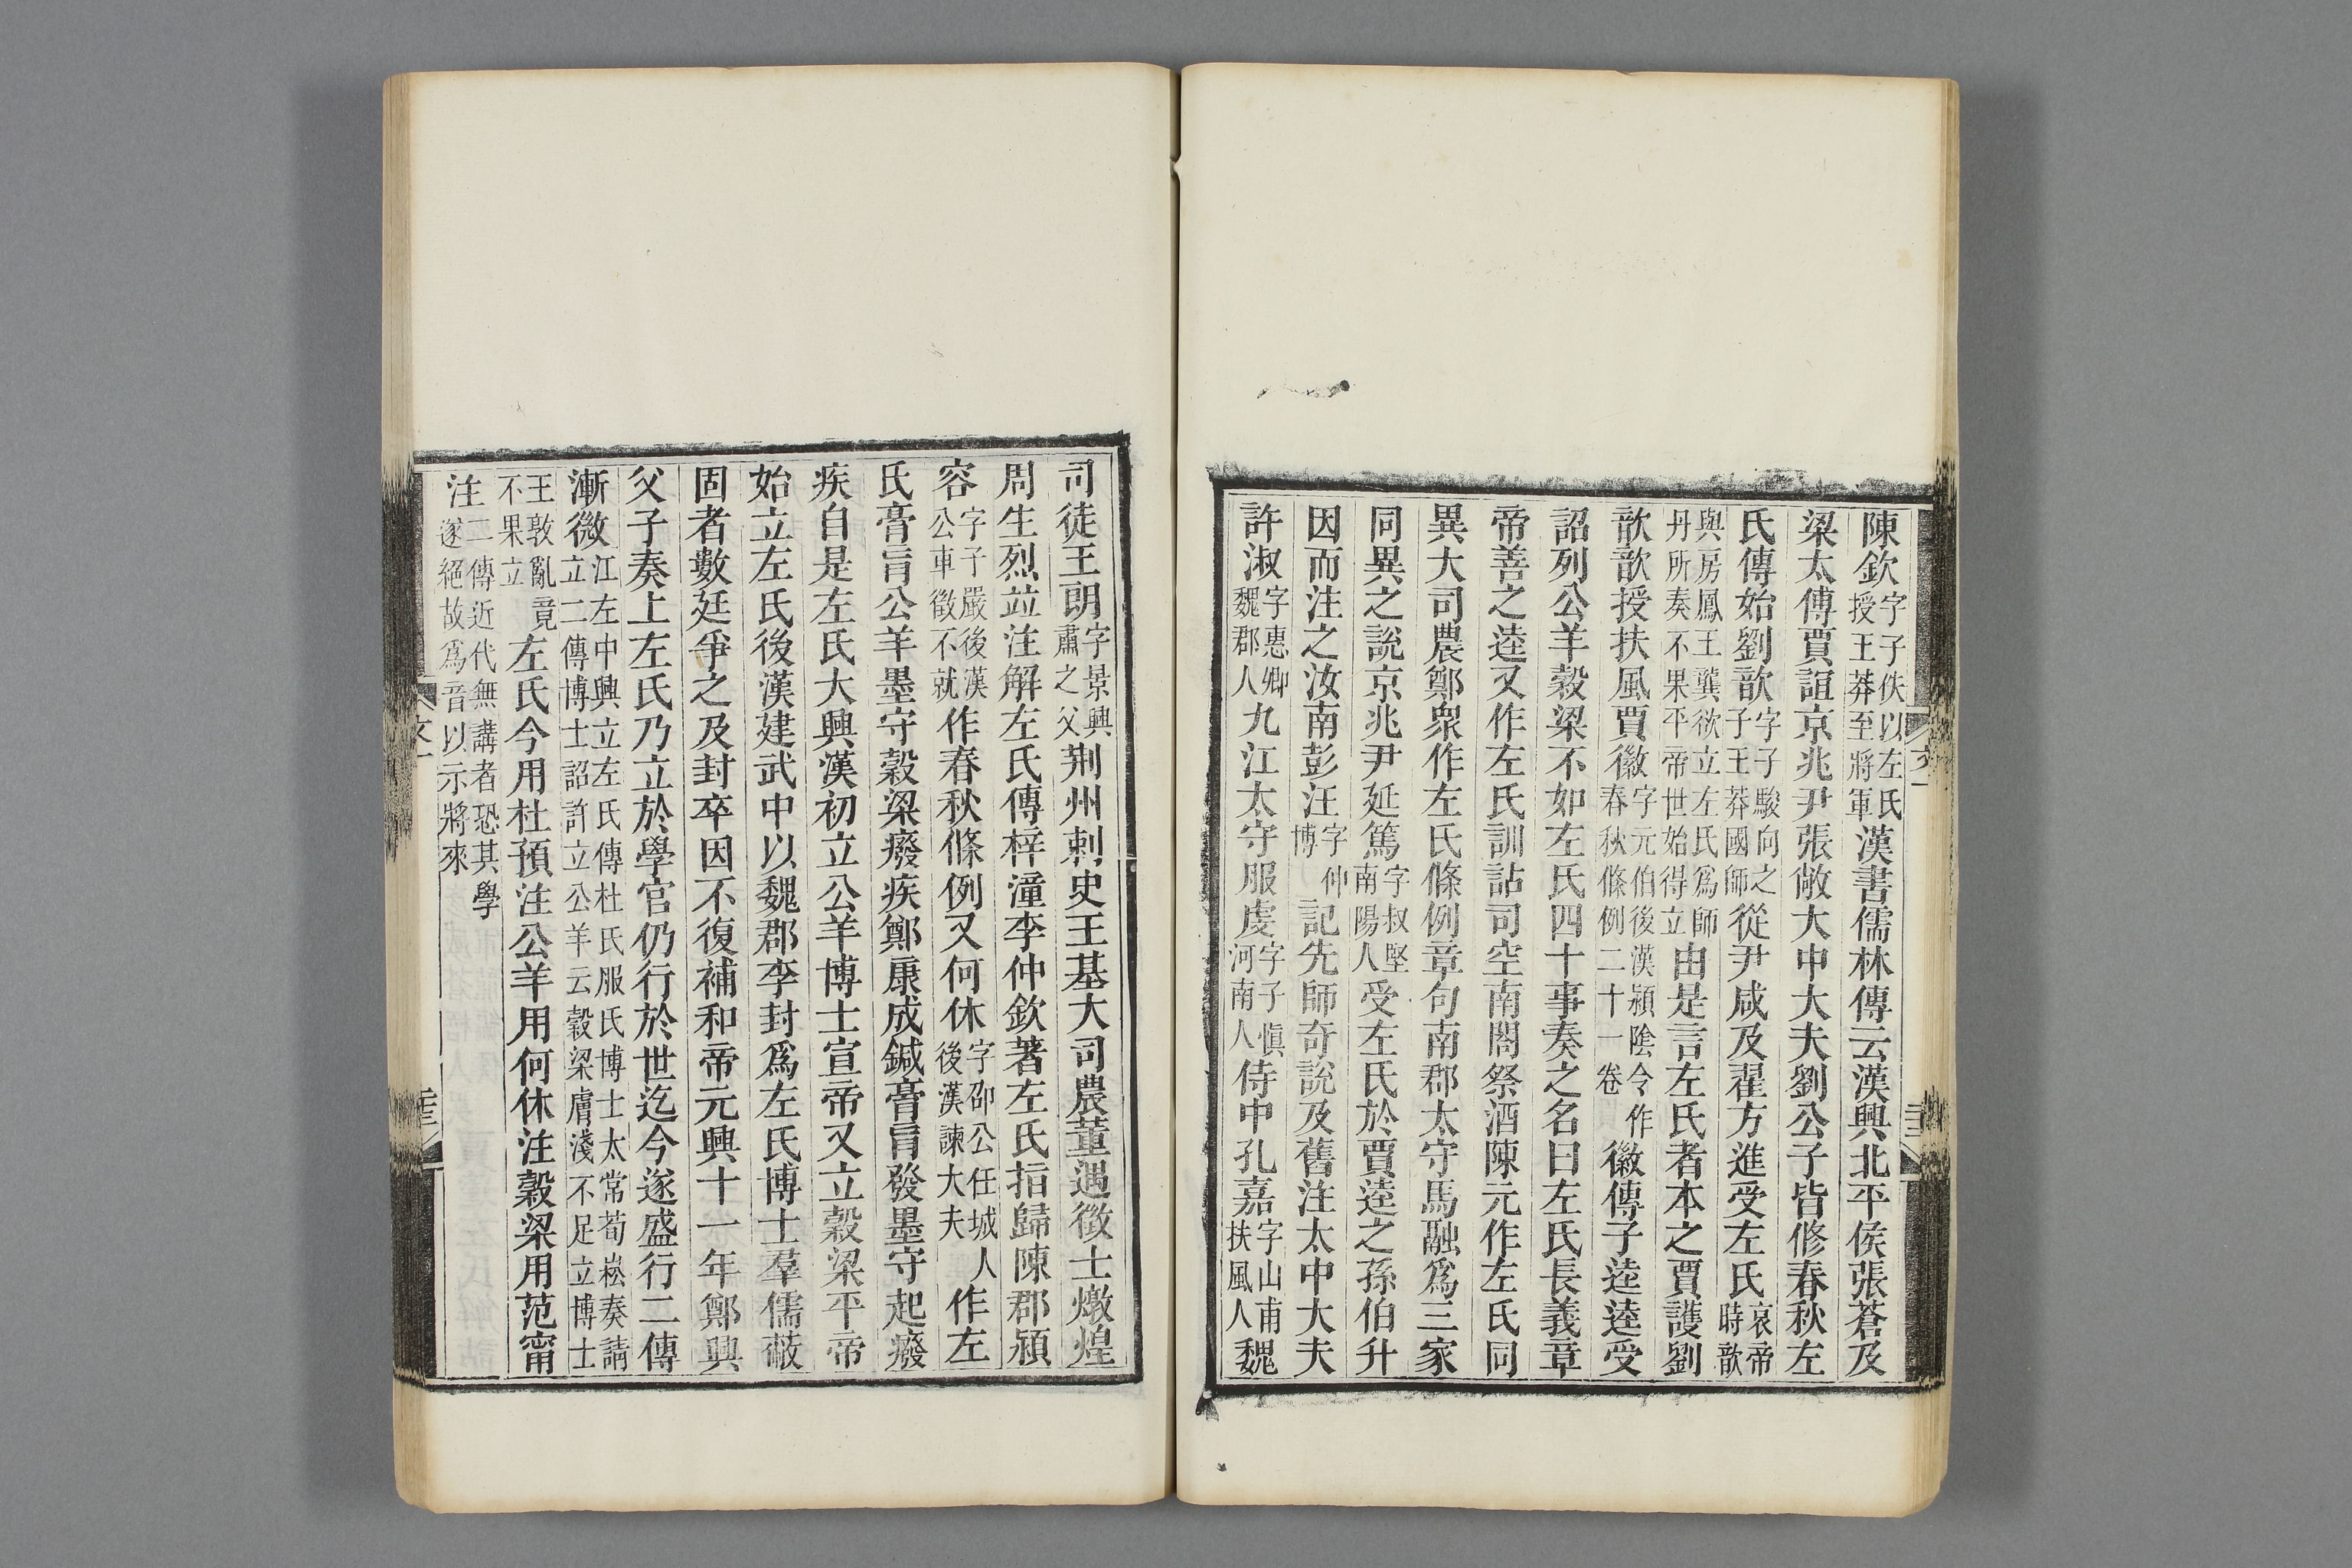 陳欽字子佚以左氏授王莽至將軍漢書儒林傳云漢興北平侯張蒼及
梁太傅賈誼京兆尹張敞大中大夫劉公子皆修春秋左
氏傳始劉歆字子駿向之子王莽國師從尹咸及翟方進受左氏哀帝時歆
與房鳳王龔欲立左氏爲師丹所奏不果平帝世始得立由是言左氏者本之賈護劉
歆歆授扶風賈徽字元伯後漢潁陰令作春秋條例二十一卷徽傳子逵逵受
詔列公羊穀梁不如左氏四十事奏之名曰左氏長義章
帝善之逵又作左氏訓詁司空南閤祭酒陳元作左氏同
異大司農鄭衆作左氏條例章句南郡太守馬融爲三家
同異之說京兆尹延篤字叔堅南陽人受左氏於賈逵之孫伯升
因而注之汝南彭汪字仲博記先師奇說及舊注太中大夫
許淑字惠卿魏郡人九江太守服虔字子慎河南人侍中孔嘉字山甫扶風人魏
司徒王朗字景興肅之父荆州刺史王基大司農董遇徵士燉煌
周生烈竝注解左氏傳梓潼李仲欽著左氏指歸陳郡潁
容字子嚴後漢公車徵不就作春秋條例又何休字邵公任城人後漢諫大夫作左
氏膏肓公羊墨守穀梁癈疾鄭康成鍼膏肓發墨守起癈
疾自是左氏大興漢初立公羊博士宣帝又立穀梁平帝
始立左氏後漢建武中以魏郡李封爲左氏博士羣儒蔽
固者數廷爭之及封卒因不復補和帝元興十一年鄭興
父子奏上左氏乃立於學官仍行於世迄今遂盛行二傳
漸微江左中興立左氏傳杜氏服氏博士太常荀崧奏請立二傳博士詔許立公羊云穀梁膚淺不足立博士
王敦亂竟不果立左氏今用杜預注公羊用何休注穀梁用范甯
注二傳近代無講者恐其學遂絕故爲音以示將來